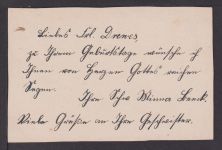 Liebes Frl. Drews
zu Ihrem Geburtstage wünsche ich
Ihnen von Herzen Gottes reichen
Segen.
Ihre Schw. Minna
Viele Grüße an Ihre Geschwister.